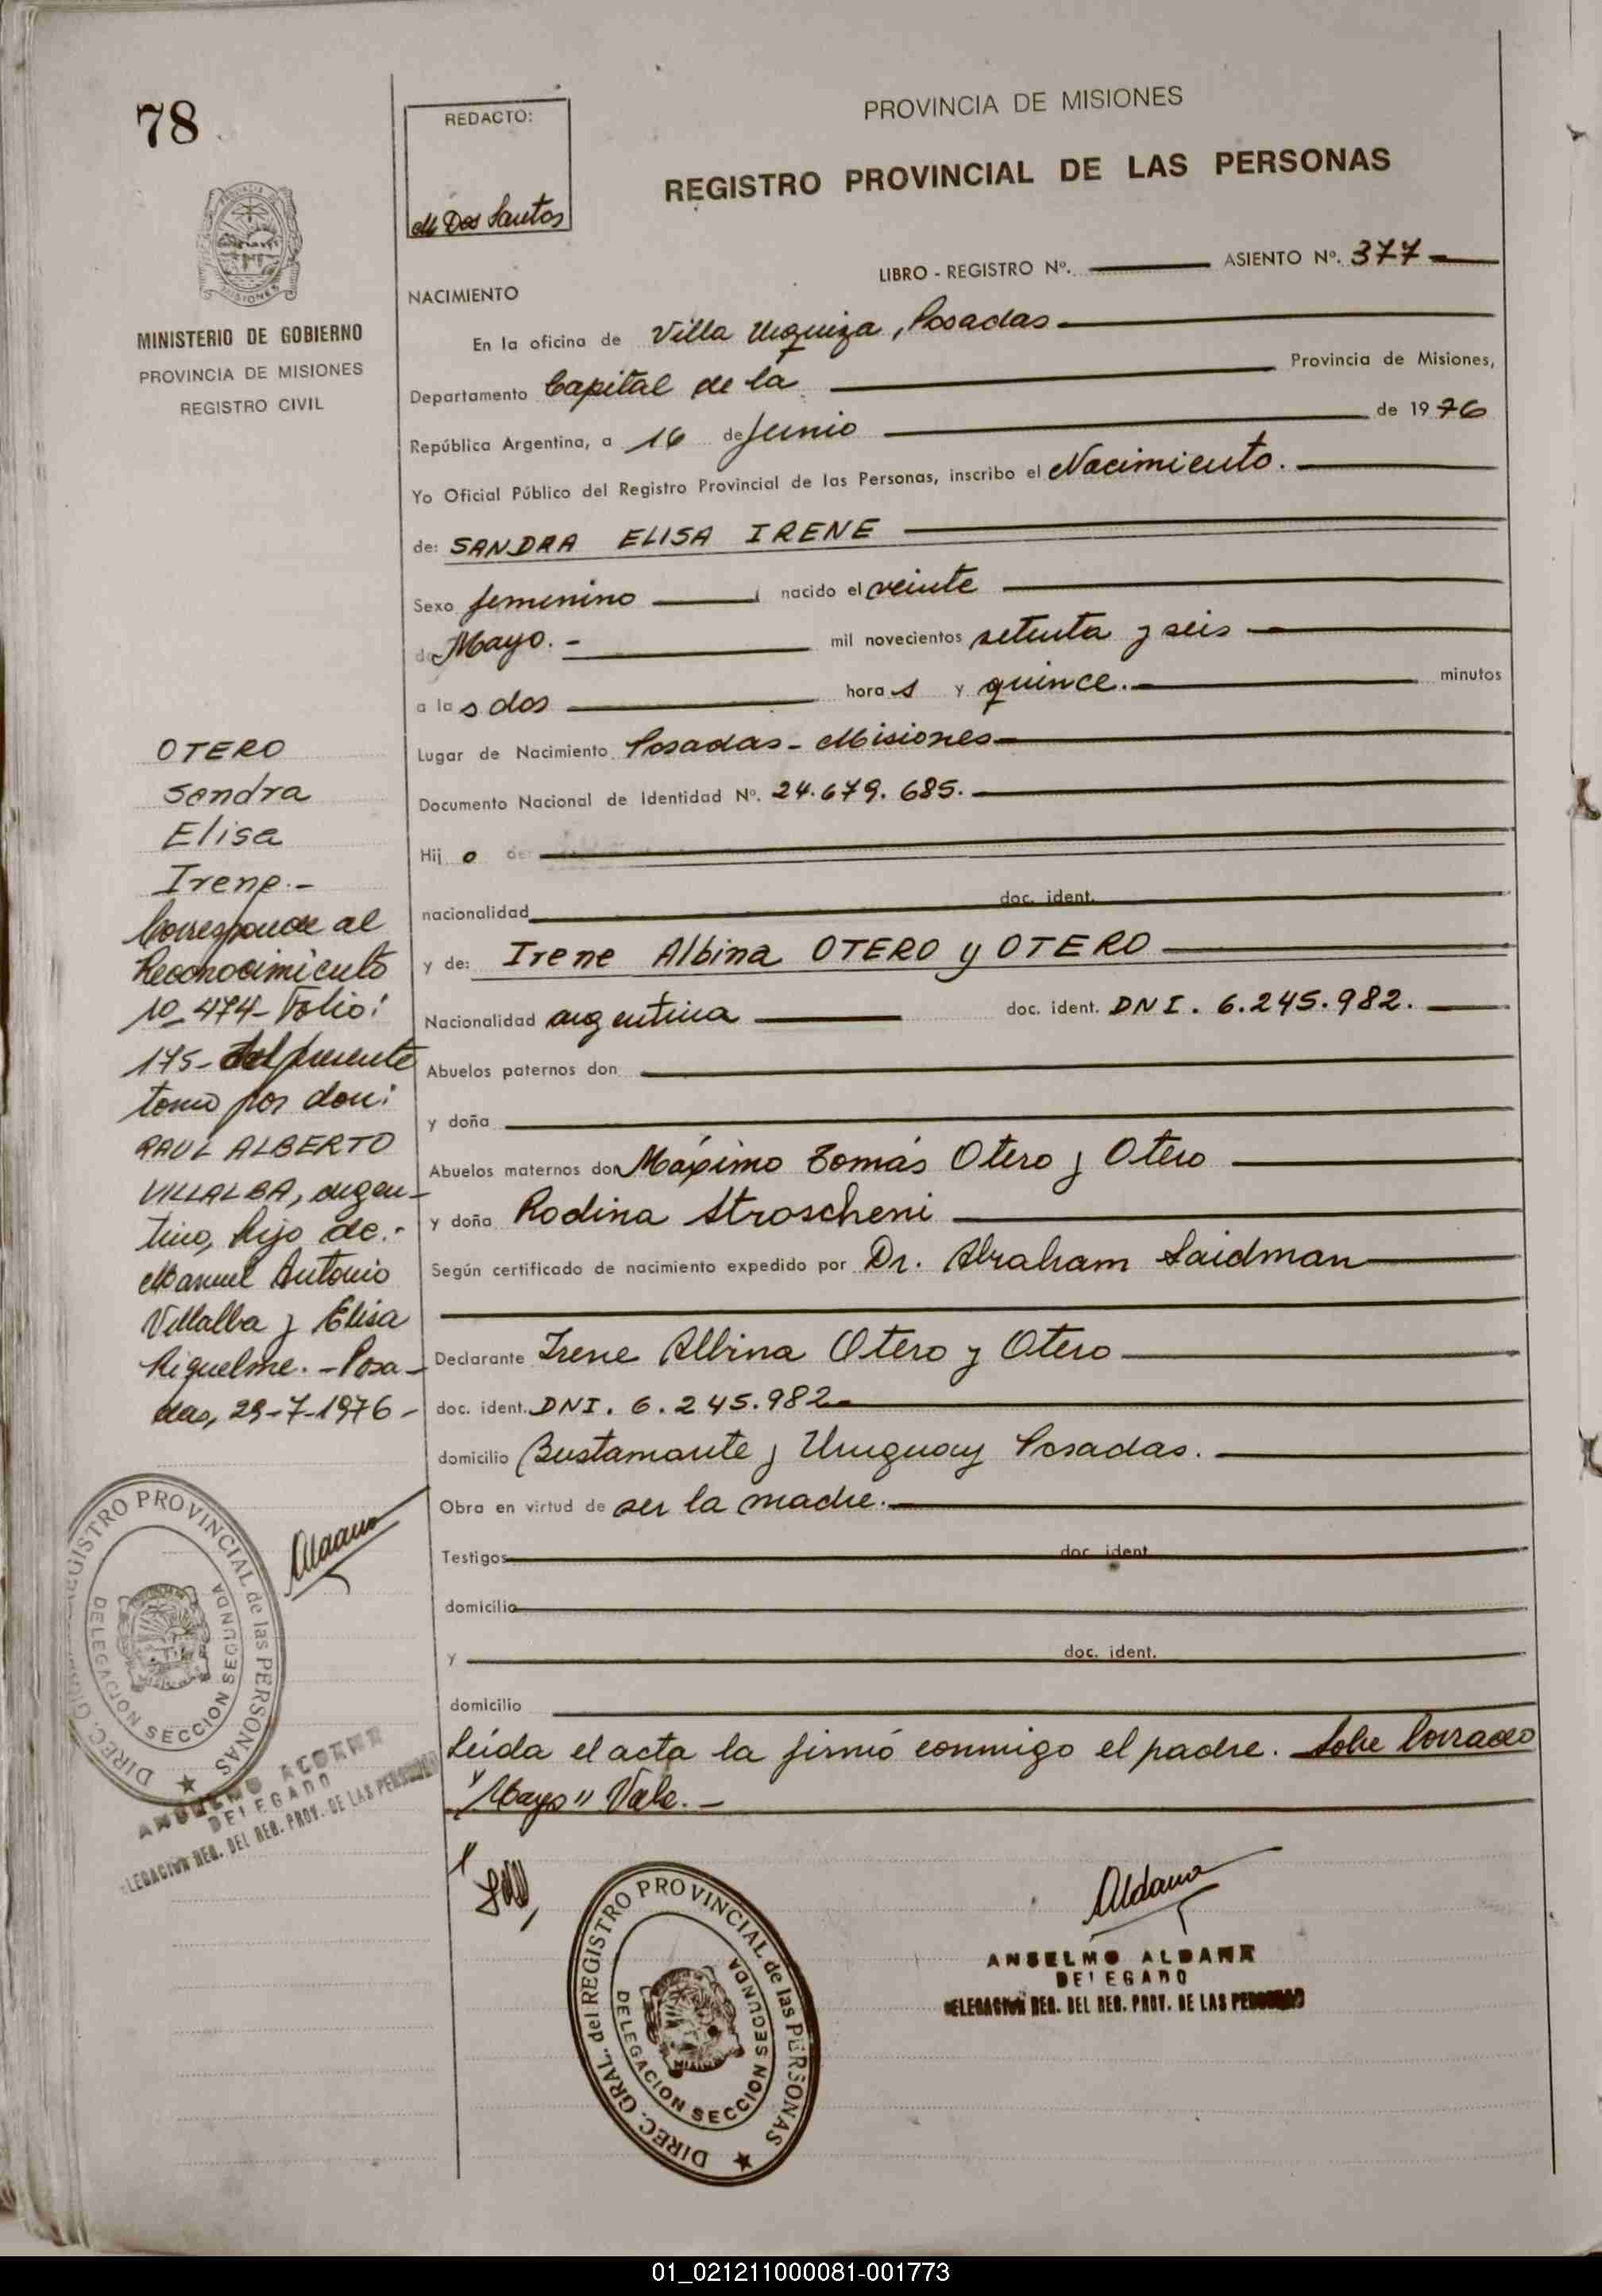 78
REDACTO:
M Dos Santos
PROVINCIA DE MISIONES
REGISTRO PROVINCIAL DE LAS PERSONAS
MISIONES
MINISTERIO DE GOBIERNO
PROVINCIA DE MISIONES
REGISTRO CIVIL
LIBRO - REGISTRO Nº. ASIENTO Nº. 377
NACIMIENTO
En la oficina de Villa Urquiza, Posadas
Departamento Capital de la Provincia de Misiones,
República Argentina, a 16 de Junio de 1976
Yo Oficial Público del Registro Provincial de las Personas, inscribo el Nacimiento.
de: SANDRA ELISA IRENE
Sexo femenino nacido el veinte
de Mayo. - mil novecientos setenta y seis
a las dos horas y quince. minutos
Lugar de Nacimiento Posadas - Misiones
Documento Nacional de Identidad Nº. 24.679.685.
Hij o de
nacionalidad doc. ident.
y de: Irene Albina OTERO y OTERO
Nacionalidad argentina doc. ident. DNI. 6.245.982.
Abuelos paternos don
y doña
Abuelos maternos don Máximo Tomás Otero y Otero
y doña Rodina Stroscheni
Según certificado de nacimiento expedido por Dr. Abraham Saidman
Declarante Irene Albina Otero y Otero
doc. ident. DNI. 6.245.982
domicilio Bustamante y Uruguay Posadas.
Obra en virtud de ser la madre.
Testigos doc. ident.
domicilio
y doc. ident.
domicilio
Leída el acta la firmó conmigo el padre. Sobre borrado
"Mayo" Vale. -
OTERO
Sandra
Elisa
Irene.-
Corresponde al
Reconocimiento
10-474-Folio:
175- del presente
tomo por don:
RAUL ALBERTO
VILLALBA, argen-
tino, hijo de.-
Manuel Antonio
Villalba y Elisa
Riquelme. - Posa-
das, 29-7-1976-
Aldana
DIREC. GRAL. del REGISTRO PROVINCIAL de las PERSONAS
DELEGACION SECCION SEGUNDA
ANSELMO ALDANA
DELEGADO
DELEGACION REG. DEL REG. PROV. DE LAS PERSONAS
DIREC. GRAL. del REGISTRO PROVINCIAL de las PERSONAS
DELEGACION SECCION SEGUNDA
Aldana
ANSELMO ALDANA
DELEGADO
DELEGACION REG. DEL REG. PROV. DE LAS PERSONAS
01_021211000081-001773